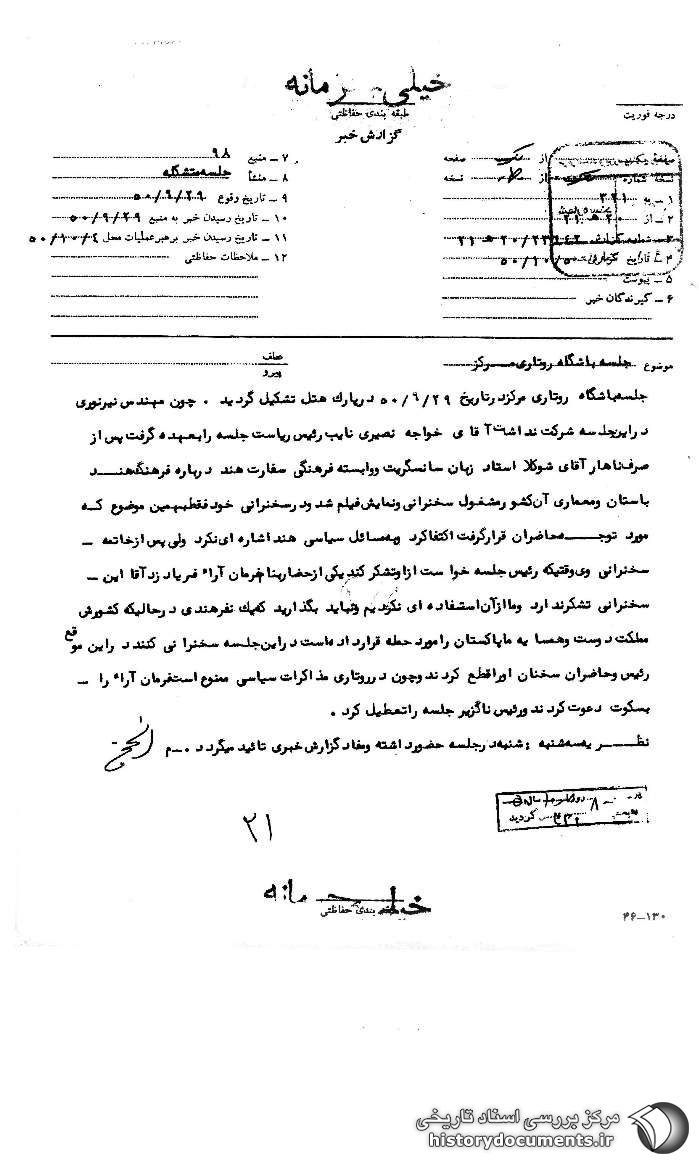 خیلی محرمانه
طبقه بندی حفاظتی
گزارش خبر
درجه فوریت
صفحه یک از یک صفحه
نسخه شماره از نسخه
۱ - به ۳۲۱
۲ - از ۲۰ ه ۲۱
۳ - شماره گزارش
۴ - تاریخ گزارش ۵۰/۱۰/۵
۵ - پیوست
۶ - گیرندگان خبر
۷ - منبع ۹۸
۸ - منشأ جلسه متشکله
۹ - تاریخ وقوع ۵۰/۹/۲۹
۱۰ - تاریخ رسیدن خبر به منبع ۵۰/۹/۲۹
۱۱ - تاریخ رسیدن خبر برهبر عملیات محل ۵۰/۱۰/۴
۱۲ - ملاحظات حفاظتی
موضوع جلسه باشگاه روتاری مرکز
عطف
پیرو
جلسه باشگاه روتاری مرکز در تاریخ ۵۰/۹/۲۹ در پارك هتل تشکیل گردید . چون مهندس نیرنوری
در این جلسه شرکت نداشت آقای خواجه نصیری نایب رئیس ریاست جلسه را بعهده گرفت پس از
صرف ناهار آقای شوکلا استاد زبان سانسگریت ووابسته فرهنگی سفارت هند درباره فرهنگ هند
باستان ومعماری آن کشور مشغول سخنرانی ونمایش فیلم شد ودر سخنرانی خود فقط بهمین موضوع که
مورد توجه حاضران قرار گرفت اکتفا کرد وبه مسائل سیاسی هند اشاره ای نکرد ولی پس از خاتمه -
سخنرانی وی وقتیکه رئیس جلسه خواست از او تشکر کند یکی از حضار بنام فرمان آراء فریاد زد آقا این -
سخنرانی تشکر ندارد وما از آن استفاده ای نکردیم ونباید بگذارید که یك نفر هندی در حالیکه کشورش
مملکت دوست وهمسایه ما پاکستان را مورد حمله قرار داده است در این جلسه سخنرانی کنند در این موقع
رئیس وحاضران سخنان او را قطع کردند وچون در روتاری مذاکرات سیاسی ممنوع است فرمان آراء را -
بسکوت دعوت کردند ورئیس ناگزیر جلسه را تعطیل کرد .
نظریه سه شنبه : شنبه در جلسه حضور داشته ومفاد گزارش خبری تائید میگردد . م
۲۱
خیلی محرمانه
طبقه بندی حفاظتی
۴۶-۱۳۰
مرکز بررسی اسناد تاریخی
historydocuments.ir